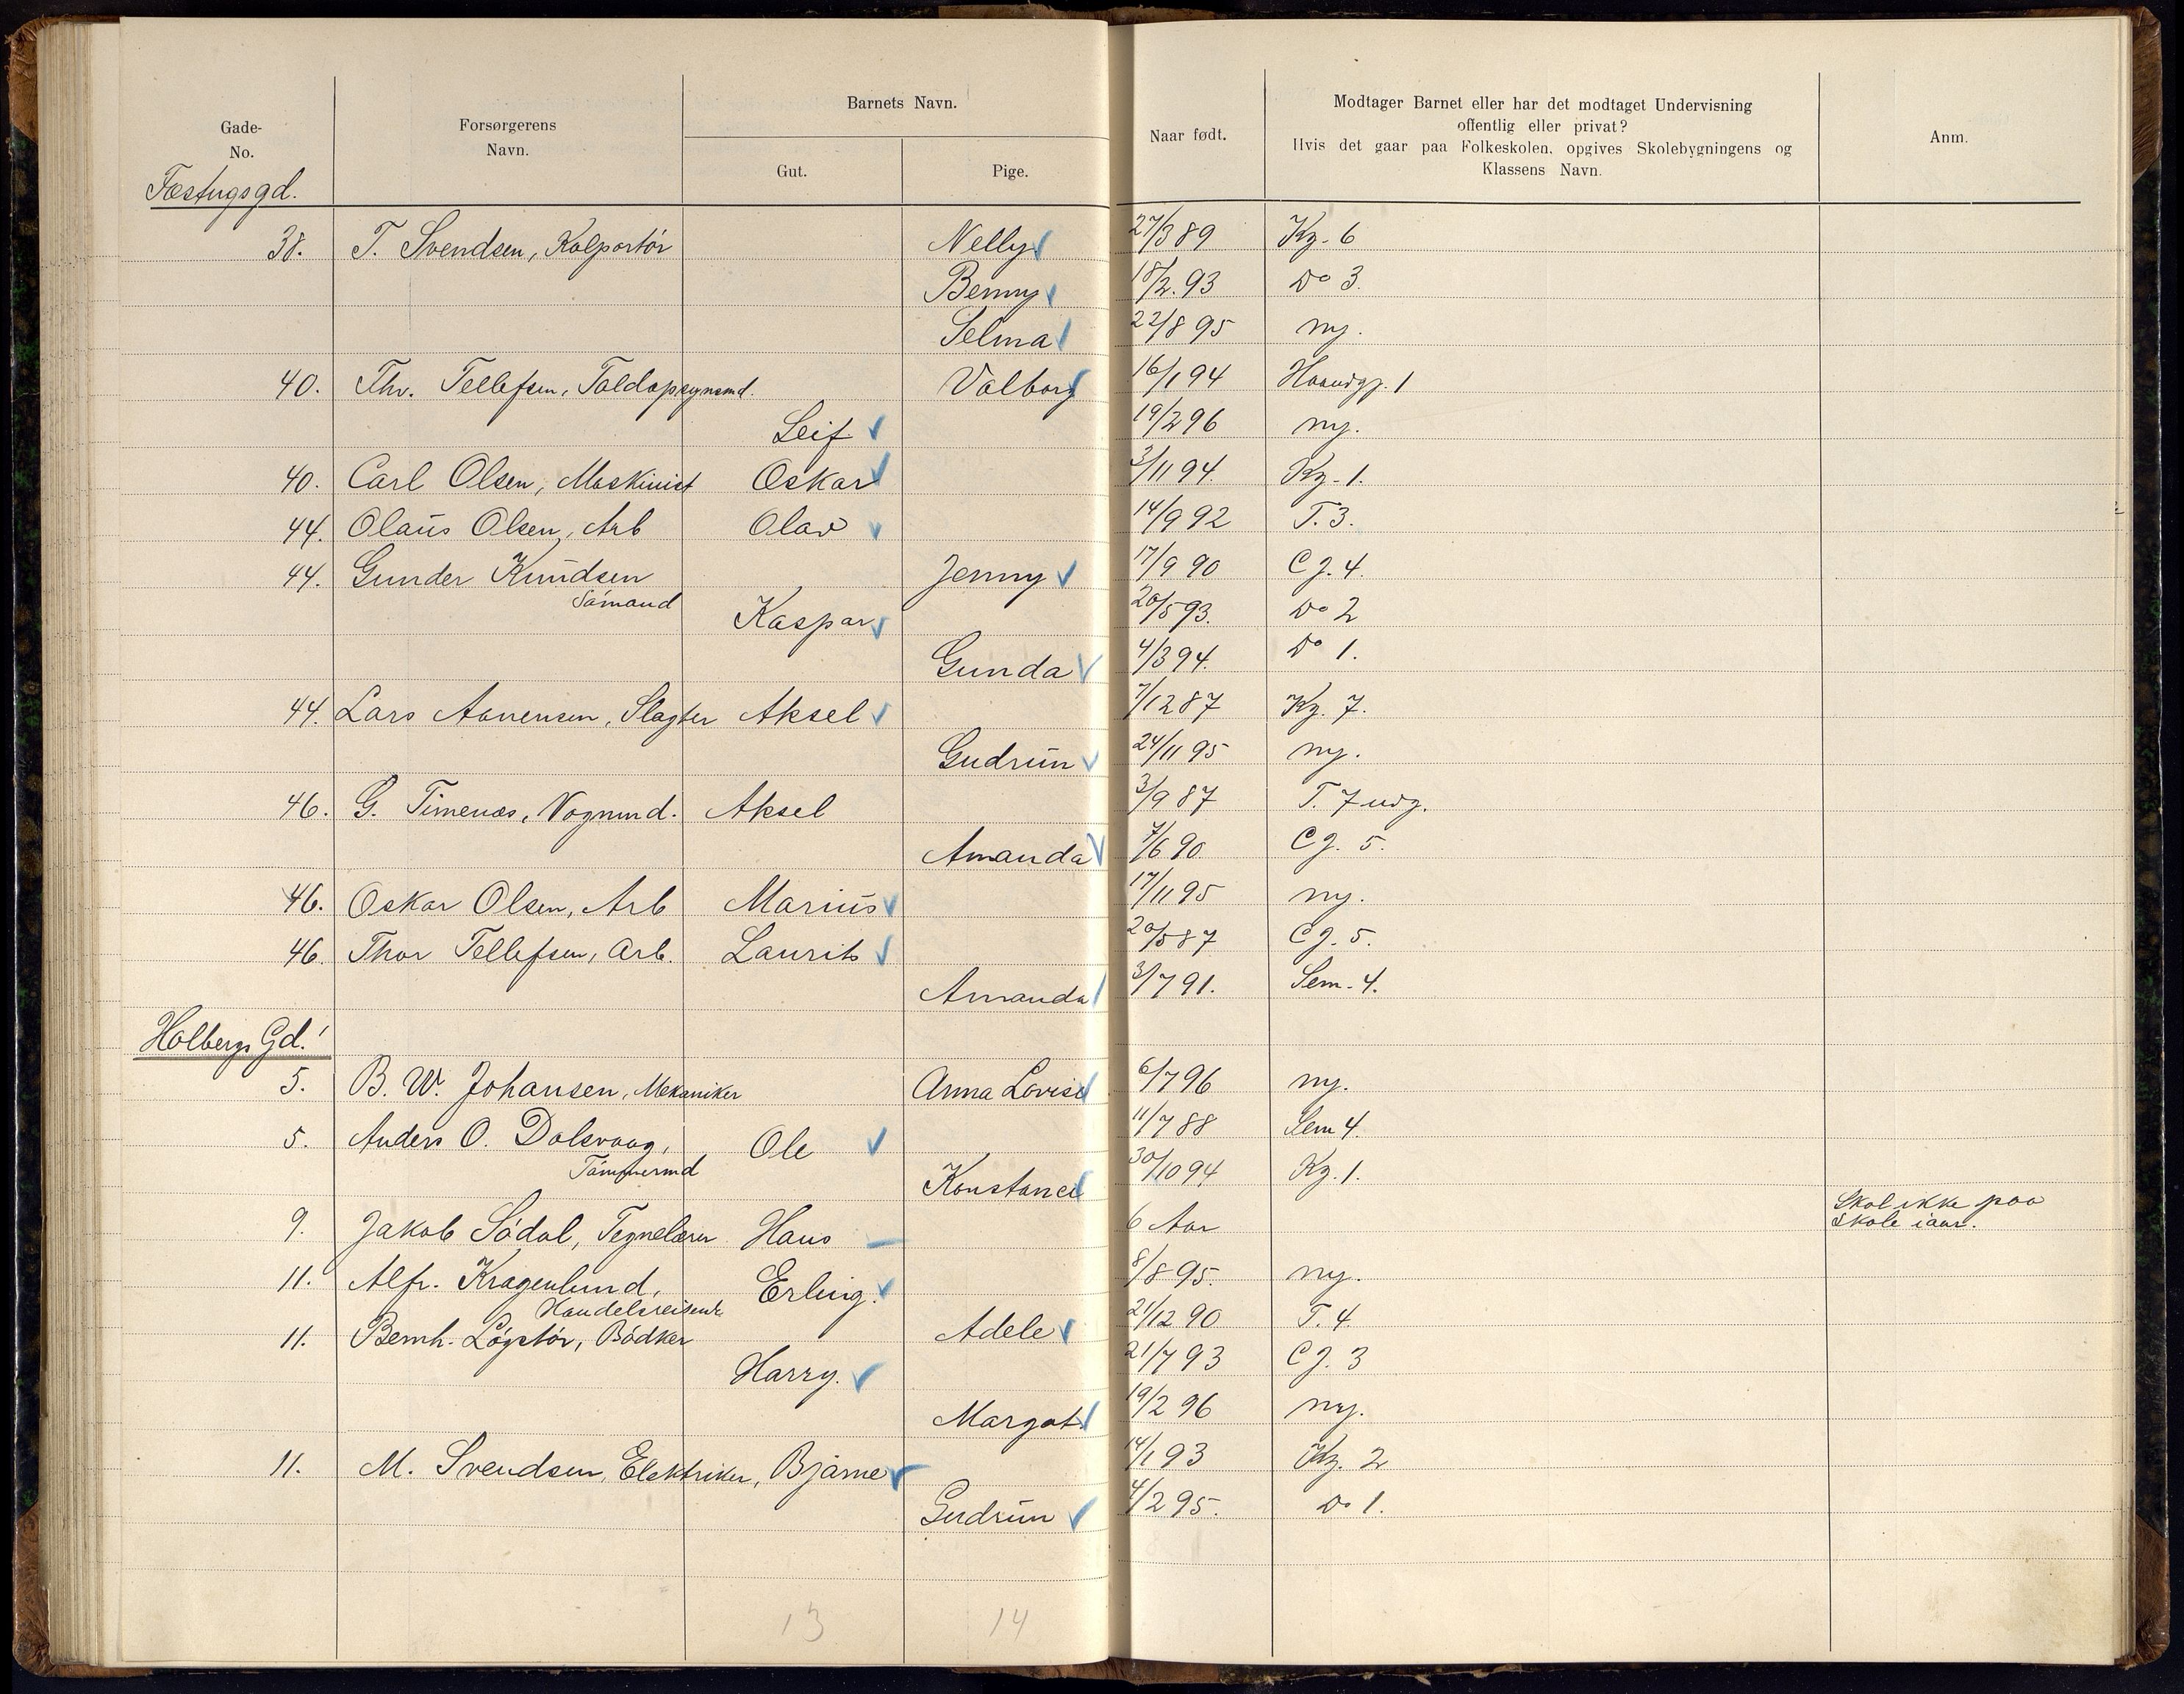 Gade-
No.
Forsørgerens
Navn.
Barnets Navn.
Gut.
Pige.
Naar født.
Modtager Barnet eller har det modtaget Undervisning
offentlig eller privat?
Hvis det gaar paa Folkeskolen, opgives Skolebygningens og
Klassens Navn.
Anm.
Fæstngsgd.
38. T. Svendsen, Kolportör Nelly 27/3 89 Kg. 6
Benny 18/2. 93 Do 3.
Selma 22/8 95 ny.
40. Thv. Tellefsen, Toldopsynsmd. Valborg 16/1 94 1
Leif 19/2 96 ny.
40. Carl Olsen, Maskinist Oskar 3/11 94. Kg. 1.
44. Olaus Olsen, Arb Olav 14/9 92 T. 3.
44. Gunder Knudsen Jenny 17/9 90 Cg. 4.
Sömand Kaspar 20/5 93. Do 2
Gunda 4/3 94. Do 1.
44. Lars Aanensen, Slagter Aksel 7/12 87 Kg. 7.
Gudrun 24/11 95 ny.
46. G. Timenes, Vognmd. Aksel 3/9 87 T. 7 udg.
Amanda 7/6 90. Cg. 5.
46. Oskar Olsen, Arb Marius 17/11 95 ny.
46. Thor Tellefsen, Arb. Laurits 20/5 87 Cg. 5.
Amanda 3/7 91. Sem. 4.
Holbergs Gd.
5. B. W. Johansen, Mekaniker Anna Lovise 6/7 96 ny.
5. Anders O. Dalsvaag, Ole 11/7 88 Sem 4.
Tömmermd Konstance 30/10 94 Kg. 1.
9. Jakob Södal, Tegnelærer Hans 6 Aar Skal ikke paa
skole iaar.
11. Alfr. Kragenlund, Erling. 8/8 95. ny.
Handelsreisende
11. Bernh. Lögstör, Bödker Adele 21/12 90 T. 4
Harry. 21/7 93 Cg. 3
Margot 19/2 96 ny.
11. M. Svendsen, Elektriker, Bjarne 14/1 93 Kg. 2
Gudrun 4/2 95. Do 1.
13 14